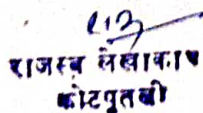 राजस्व लेखाकार
कोटपूतली